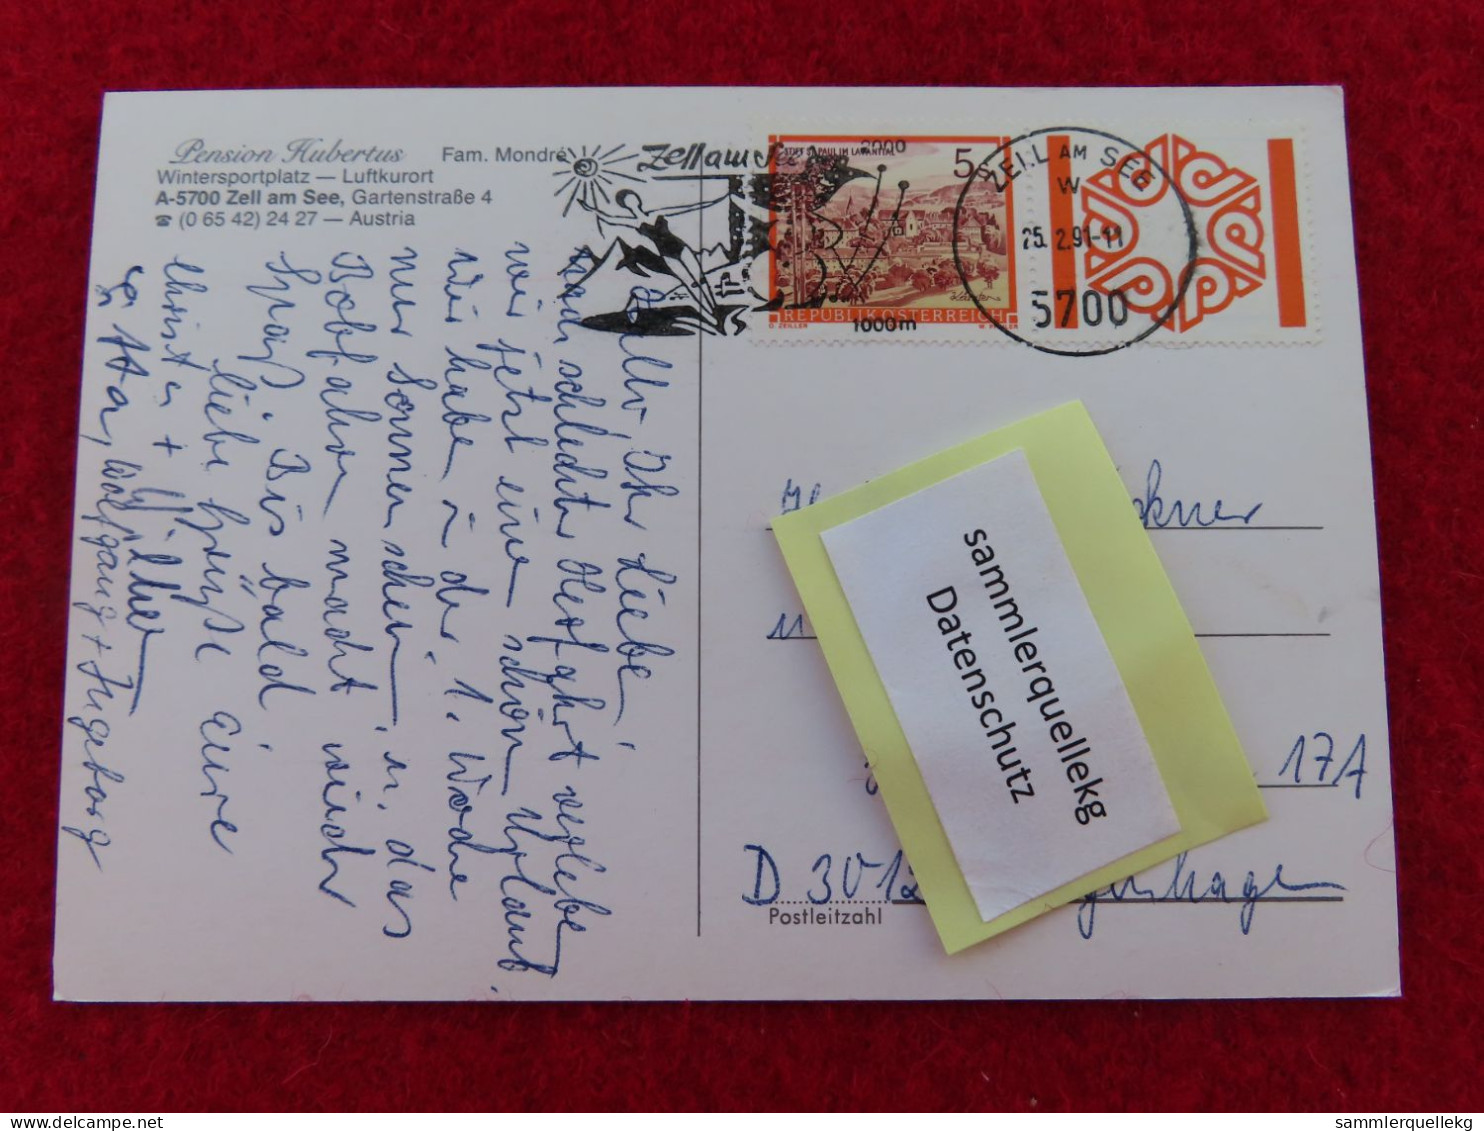 Pension Hubertus Fam. Mondré
Wintersportplatz — Luftkurort
A-5700 Zell am See, Gartenstraße 4
☎ (0 65 42) 24 27 — Austria
Zell am See
2000
1000m
STIFT ST. PAUL IM LAVANTTAL
5
REPUBLIK ÖSTERREICH
O. ZEILLER
ZELL AM SEE
W
25. 2.91-11
5700
Hallo Ihr Lieben,
nach schlechter Herfahrt verleben
wir jetzt einen schönen Urlaub.
Wir haben in der 1. Woche
nur Sonnenschein, u. das
Bobfahren macht wieder
Spaß. Bis bald
liebe Grüße Eure
Christa +
Wolfgang + Ingeborg
ckner
17A
D 3012 genhagen
Postleitzahl
sammlerquellekg
Datenschutz
sammlerquellekg